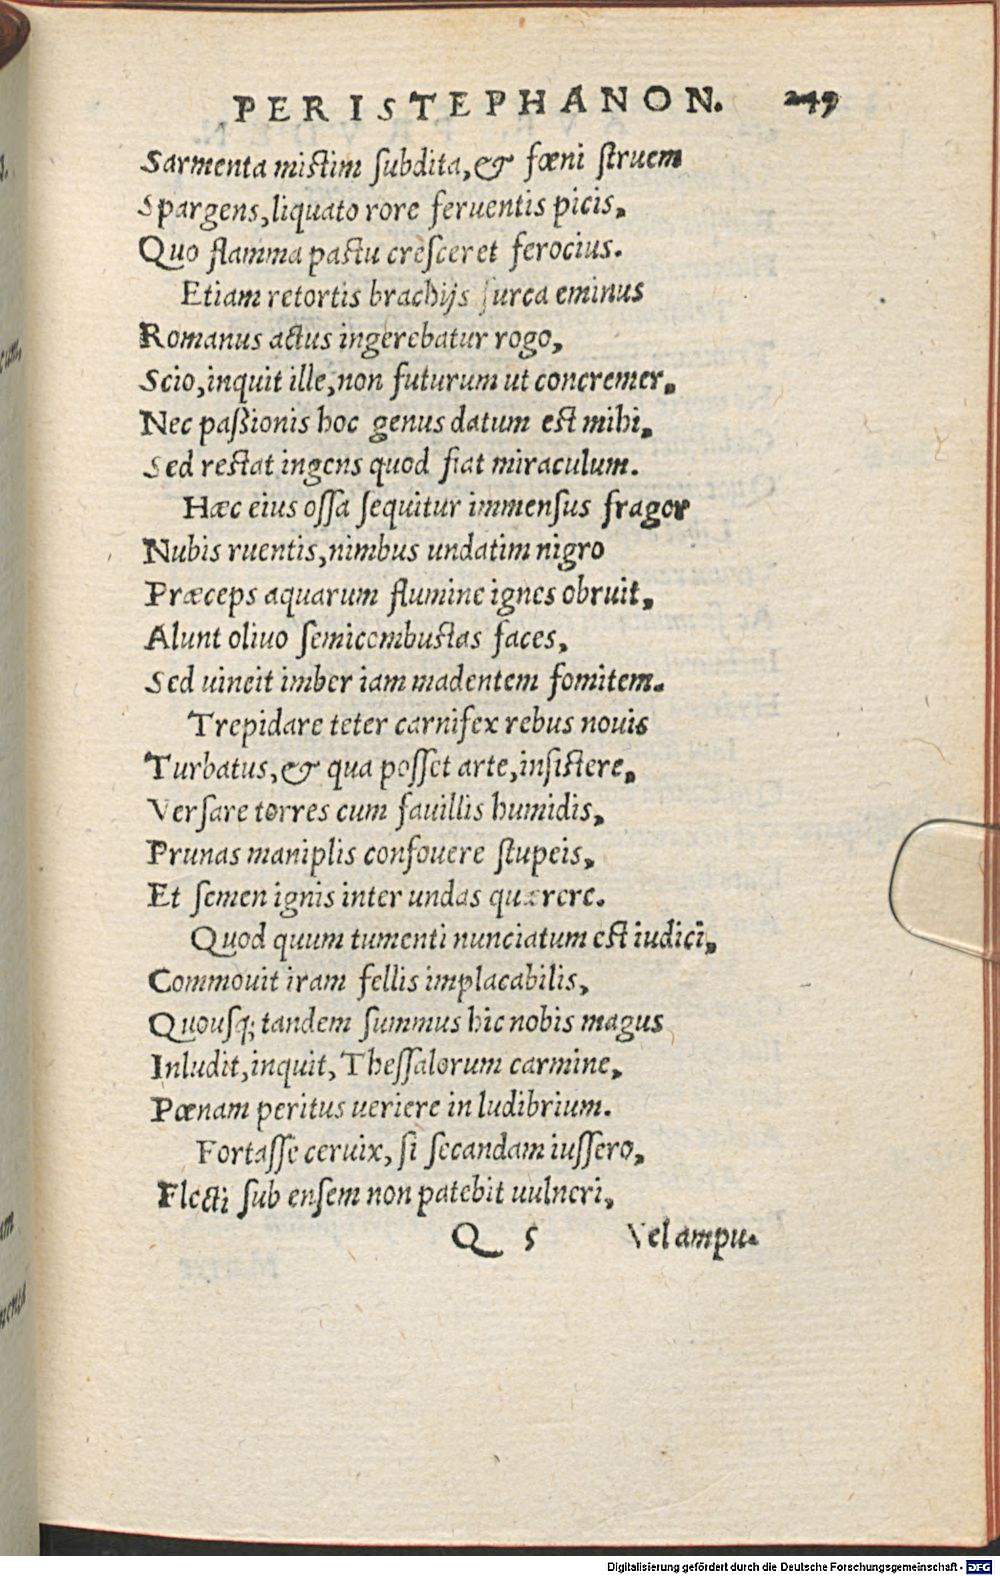 PERISTEPHANON. 249
Sarmenta mistim ſubdita, & fœni ſtruem
Spargens, liquato rore feruentis picis,
Quo flamma pastu creſceret ferocius.
Etiam retortis brachijs furca eminus
Romanus actus ingerebatur rogo,
Scio, inquit ille, non futurum ut concremer,
Nec paßionis hoc genus datum est mihi,
Sed restat ingens quod fiat miraculum.
Hæc eius oſſa ſequitur immenſus fragor
Nubis ruentis, nimbus undatim nigro
Præceps aquarum flumine ignes obruit,
Alunt oliuo ſemicombustas faces,
Sed uincit imber iam madentem fomitem.
Trepidare teter carnifex rebus nouis
Turbatus, & qua poſſet arte, inſistere,
Verſare torres cum fauillis humidis,
Prunas maniplis confouere ſtupeis,
Et ſemen ignis inter undas quærere.
Quod quum tumenti nunciatum est iudici,
Commouit iram fellis implacabilis,
Quouſq; tandem ſummus hic nobis magus
Inludit, inquit, Theſſalorum carmine,
Pœnam peritus ueriere in ludibrium.
Fortaſſe ceruix, ſi ſecandam iuſſero,
Flecti ſub enſem non patebit uulneri,
Q 5 Vel ampu-
Digitalisierung gefördert durch die Deutsche Forschungsgemeinschaft - DFG